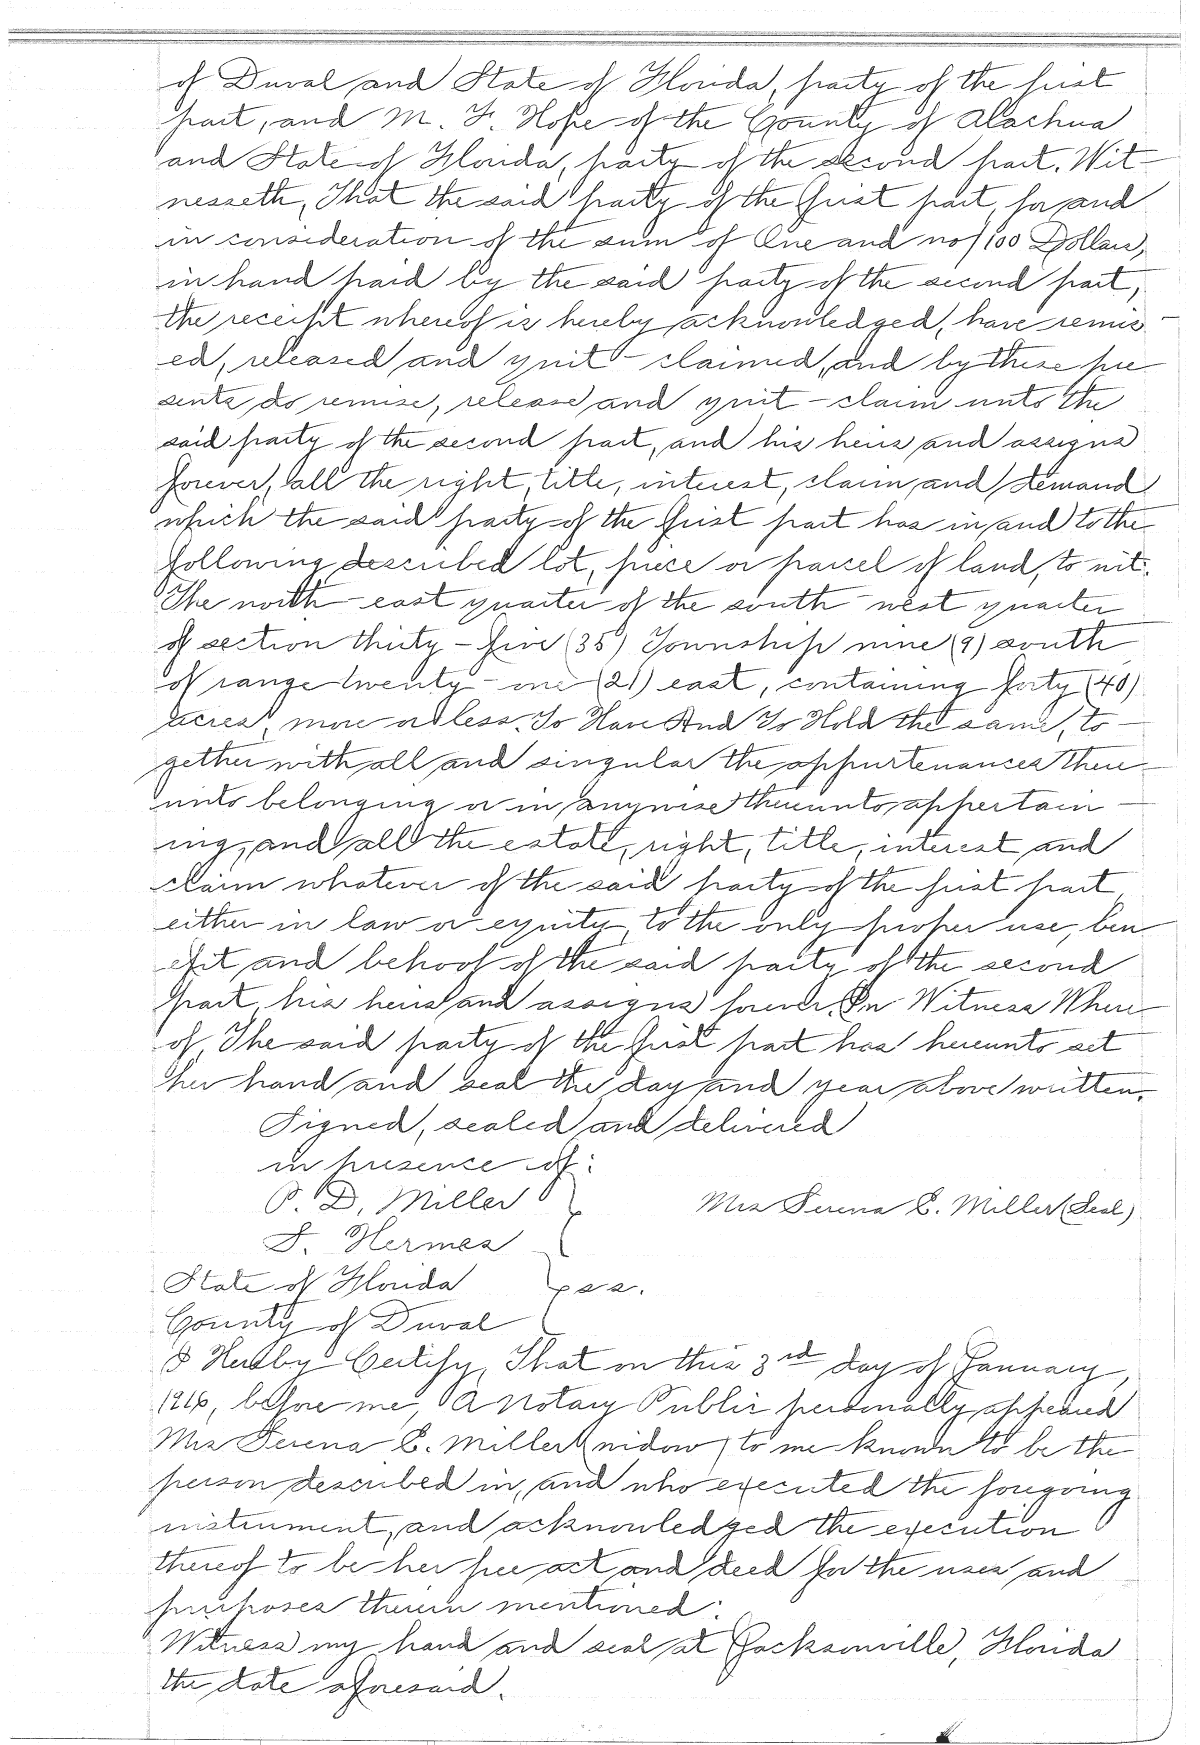 of Duval and State of Florida, party of the first
part, and M. F. Hope of the County of Alachua
and State of Florida, party of the second part. Wit-
nesseth, That the said party of the first part, for and
in consideration of the sum of One and no/100 Dollars,
in hand paid by the said party of the second part,
the receipt whereof is hereby acknowledged, have remis-
ed, released and quit-claimed, and by these pre
sents do remise, release and quit-claim unto the
said party of the second part, and his heirs and assigns
forever, all the right, title, interest, claim and demand
which the said party of the first part has in and to the
following described lot, piece or parcel of land, to wit:
The north-east quarter of the south-west quarter
of section thirty-five (35) Township nine (9) south
of range twenty-one (21) east, containing forty (40)
acres, more or less. To Have And To Hold the same, to-
gether with all and singular the appurtenances there-
unto belonging or in anywise thereunto appertain-
ing, and all the estate, right, title, interest and
claim whatever of the said party of the first part,
either in law or equity, to the only proper use, ben-
efit and behoof of the said party of the second
part, his heirs and assigns forever. In Witness Where-
of, The said party of the first part has hereunto set
her hand and seal the day and year above written.
Signed, sealed and delivered
in presence of:
P. D. Miller
Mrs Serena E. Miller (Seal)
F. Hermes
State of Florida } ss.
County of Duval
I Hereby Certify, That on this 3rd day of January,
1916, before me, A Notary Public personally appeared
Mrs Serena E. Miller (widow) to me known to be the
person described in, and who executed the foregoing
instrument, and acknowledged the execution
thereof to be her free act and deed for the uses and
purposes therein mentioned:
Witness my hand and seal at Jacksonville, Florida
the date aforesaid.